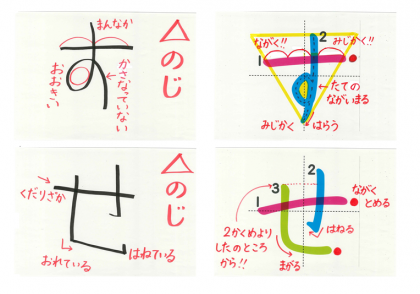 まんなか
す
おおきい
かさなっていない
△のじ
ながく!!
みじかく!!
1
2
たての
ながいまる
みじかく
はらう
せ
くだりざか
おれている
はねている
△のじ
3
2
1
ながく
とめる
2かくめより
したのところ
から!!
はねる
まがる
せ